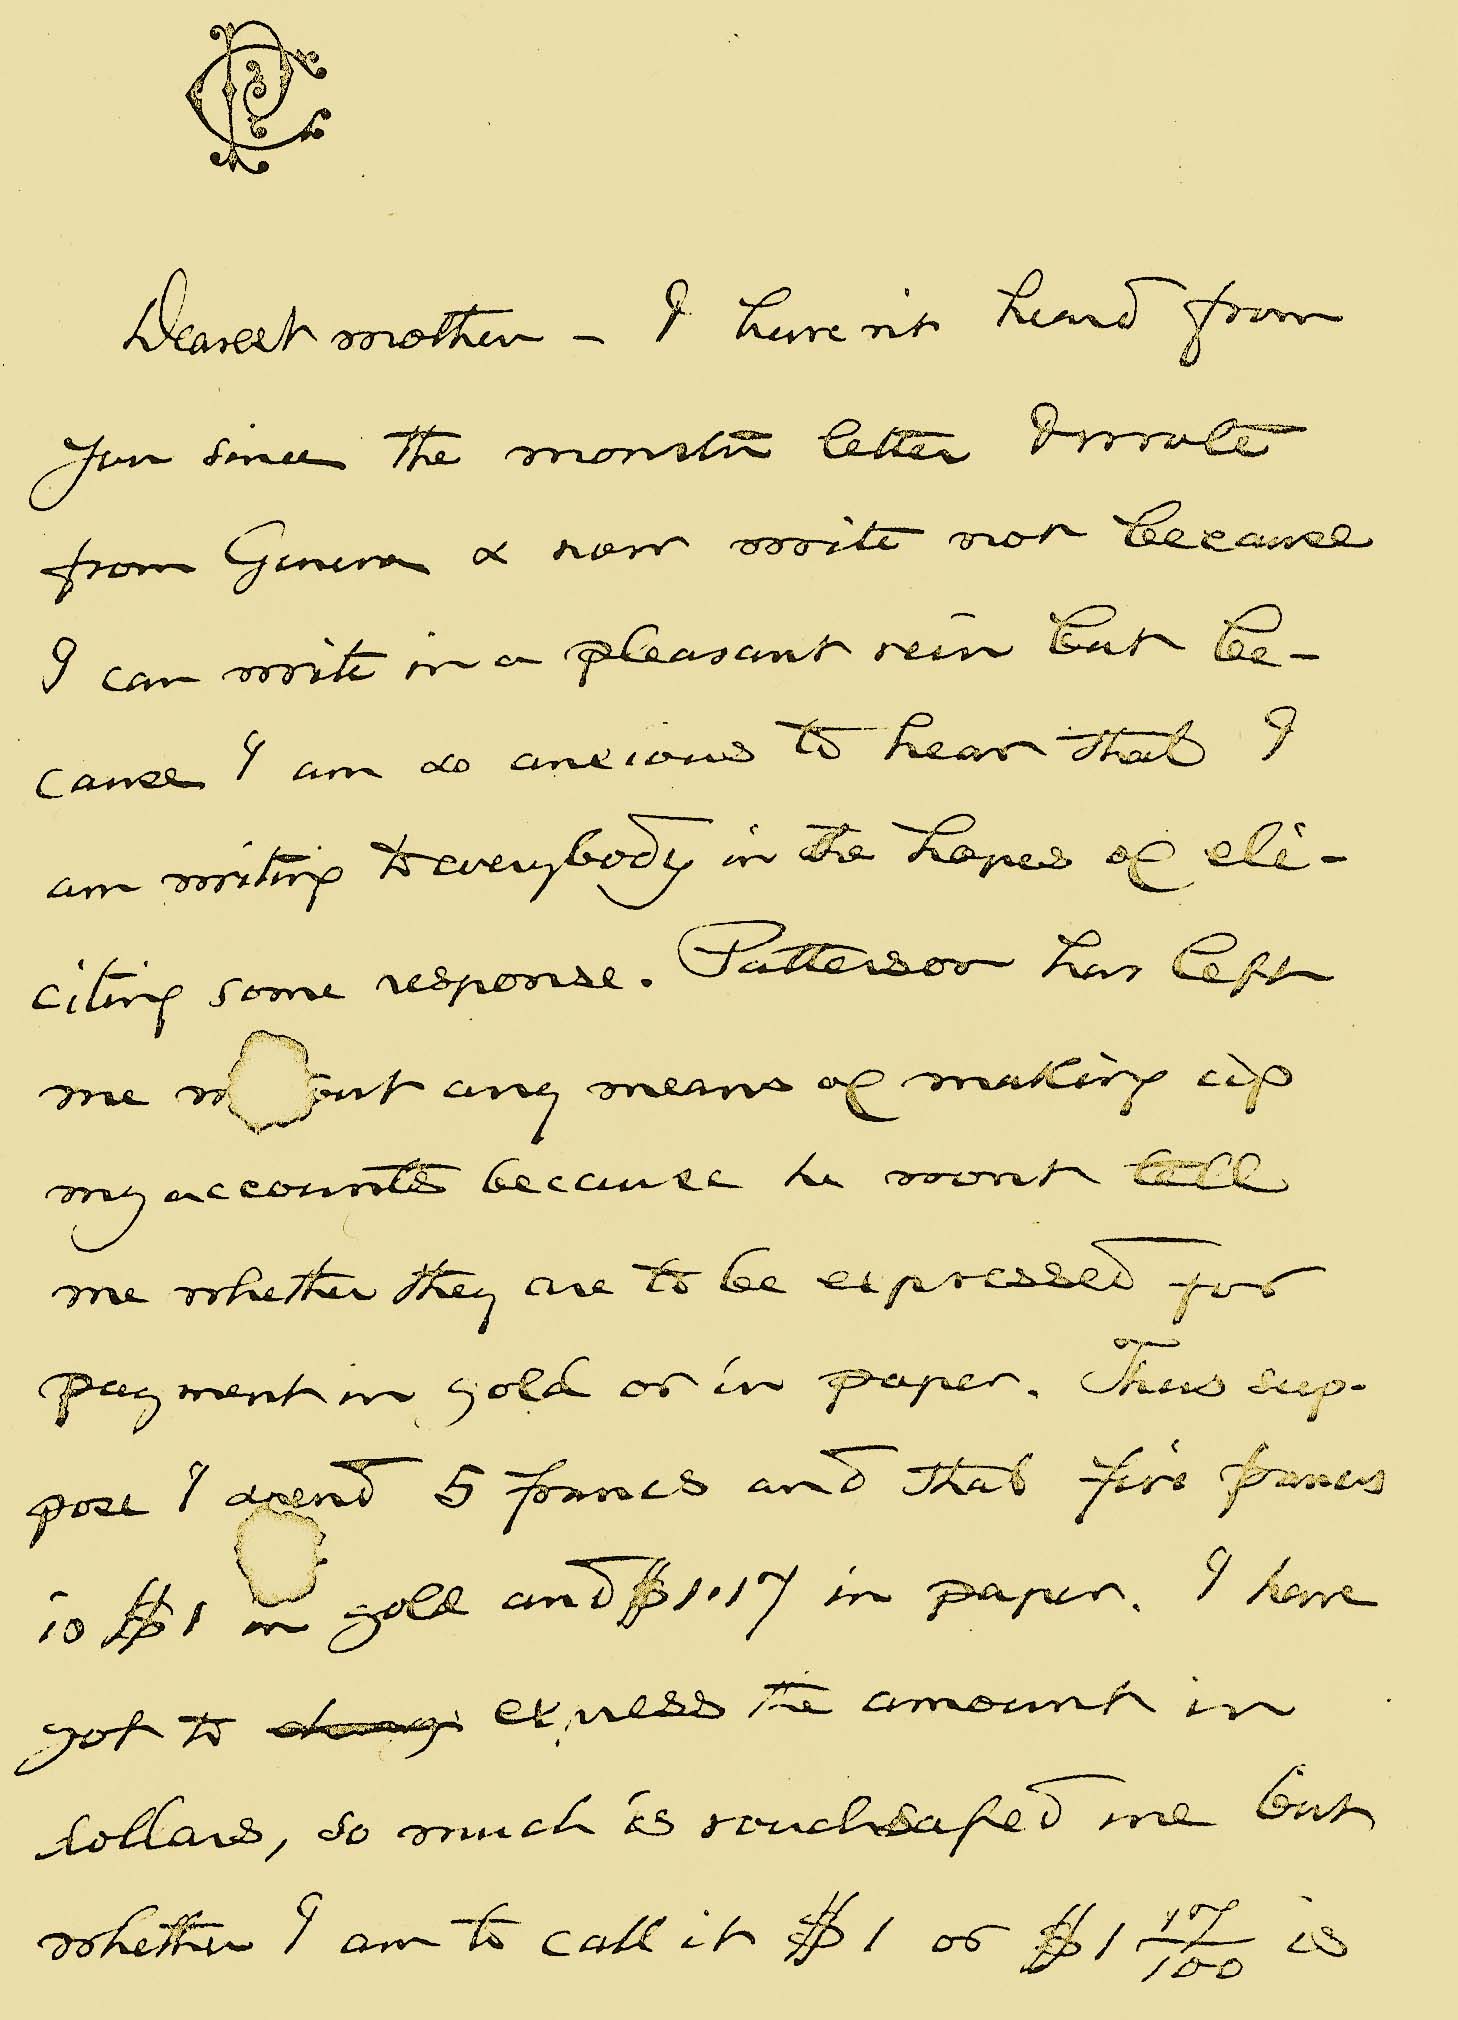 Dearest mother – I haven't heard from
you since the monster letter I wrote
from Geneva & now write not because
I can write in a pleasant vein but be-
cause I am so anxious to hear that I
am writing to everybody in the hopes of eli-
citing some response. Patterson has left
me w out any means of making up
my accounts because he wont tell
me whether they are to be expressed for
payment in gold or in paper. Thus sup-
pose I spend 5 francs and that five francs
is $1 in gold and $1.17 in paper. I have
got to express the amount in
dollars, so much is vouchsafed me but
whether I am to call it $1 or $1 17/100 is